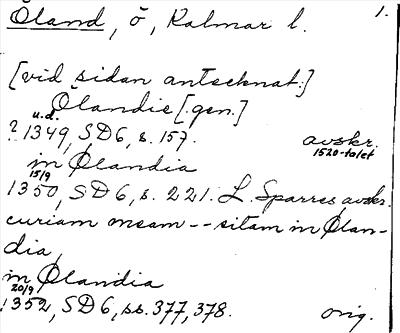 Öland, ö, Kalmar l. 1.
[vid sidan antecknat:]
Ølandie [gen.]
u.d.
? 1349, SD 6, s. 157. avskr.
1520-talet
in Ølandia
15/9
1350, SD 6, s. 221. L. Sparres avskr.
curiam meam -- sitam in Ølan-
dia
in Ølandia
20/9
1352, SD 6, ss. 377, 378. orig.